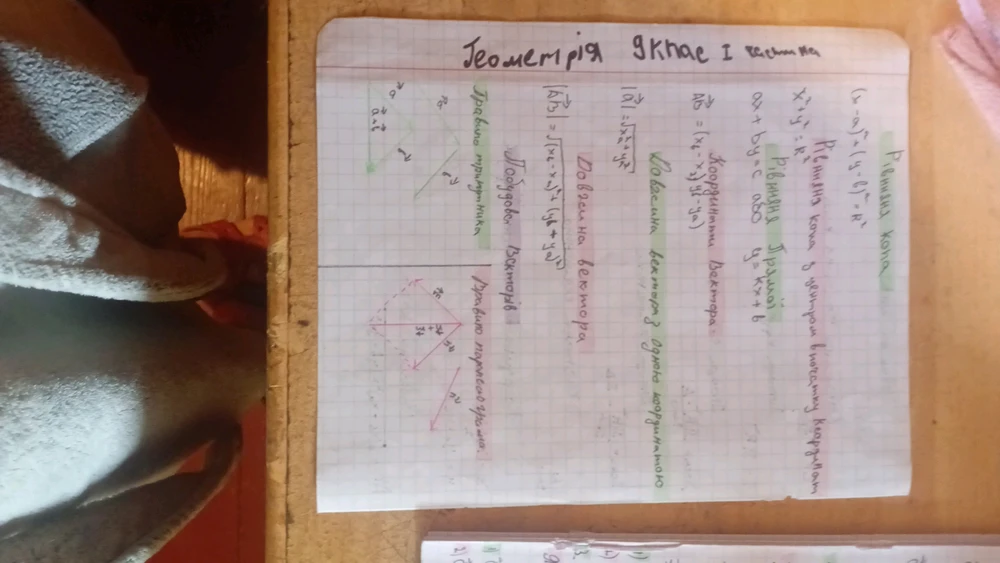 Геометрія 9 клас I частина
Рівняня кола
(x-a)²+(y-b)²=R²
Рівняня кола з центром в початку координат
x²+y²=R²
Рівняня Прямої
ax+by=c або y=kx+b
Координати Вектора
AB = (x_b-x_a; y_b-y_a)
Довжина вектора з одною координатою
|a|=√x²+y²
Довжина вектора
|AB|=√(x_b-x_a)²+(y_b+y_a)²
Побудова Векторів
Правило трикутника
a
b
a
b
a+b
Правило паралелограма.
a
b
a+b
b
1)
2)
3.